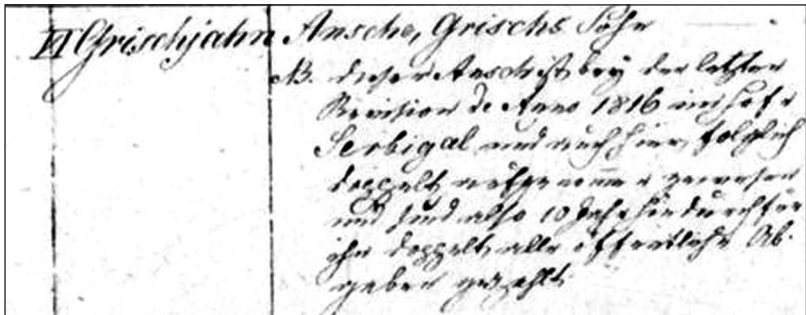 VI Grischjahn Ansche, Grischs Sohn
NB. dieser Ansch ist bey der letzten
Revision de Anno 1816 ins hofe
Serbigal und auch hier, folglich
doppelt aufgenommen gewesen
und sind also 10 Jahr hindurch für
ihn doppelt alle öffentliche Ab-
gaben gezahlt